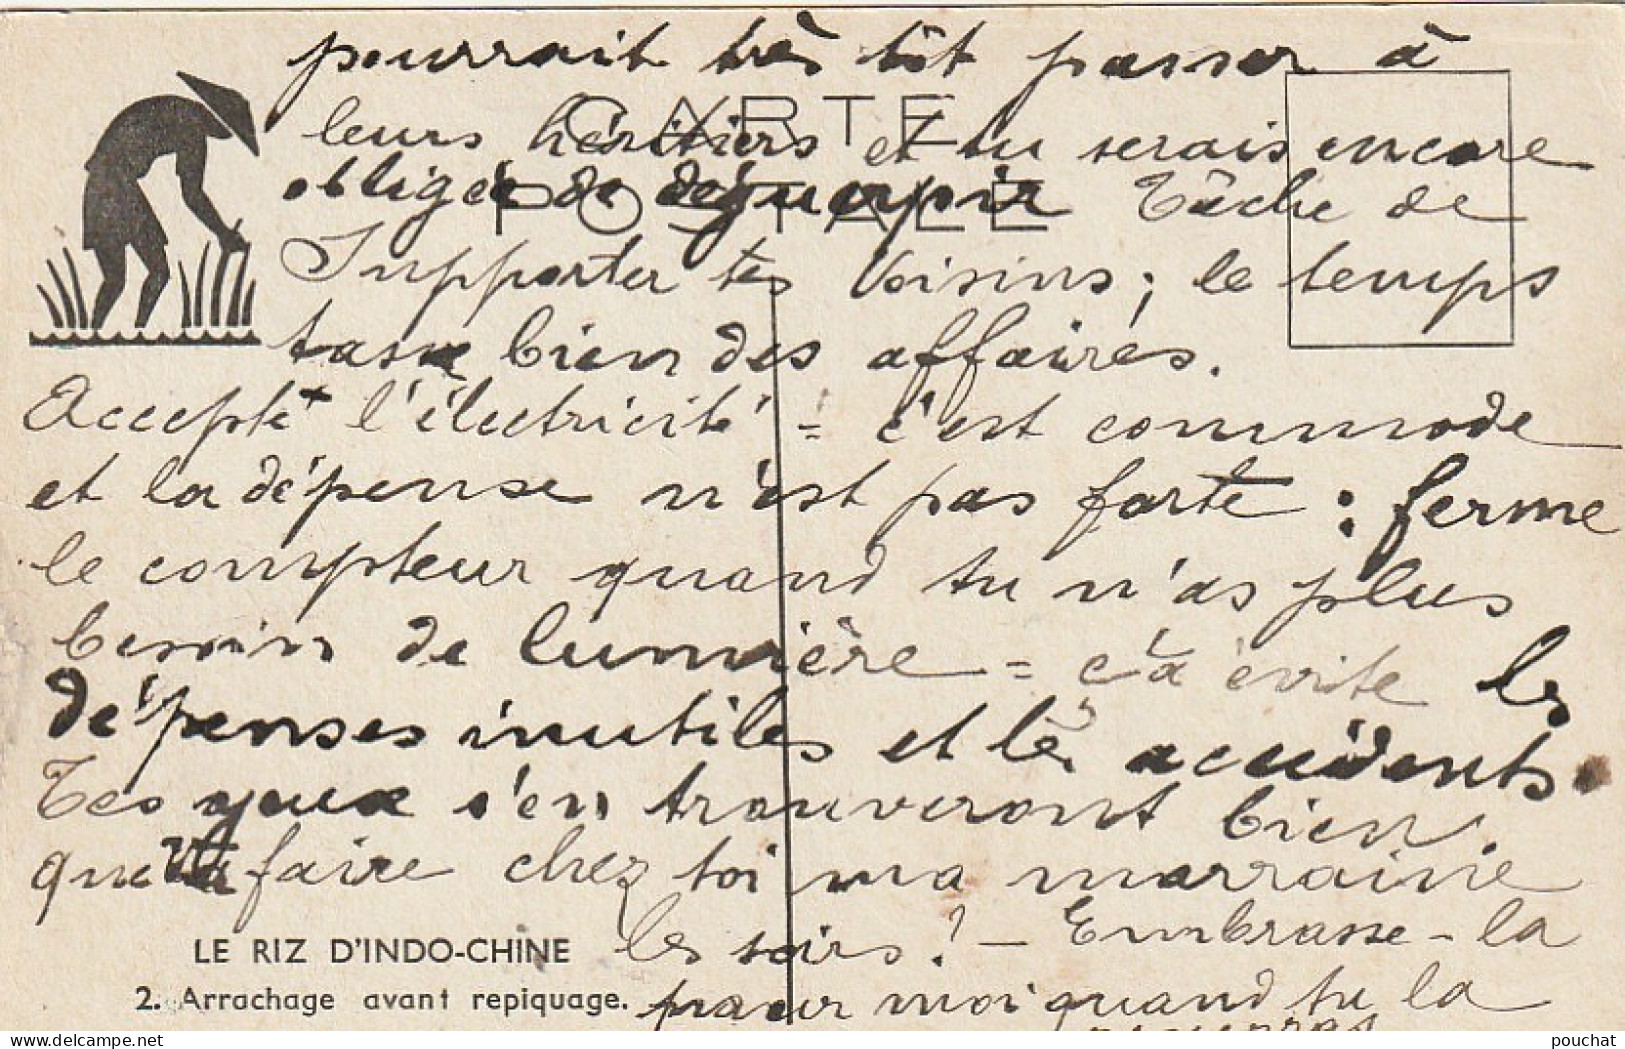 pourrait très tôt passer à
CARTE
leurs héritiers et tu serais encore
obligée de déguerpir Tâche de
POSTALE
Supporter tes Voisins ; le temps
tasse bien des affaires.
Accepte l'électricité = c'est commode
et la dépense n'est pas forte : ferme
le compteur quand tu n'as plus
besoin de lumière = çà évite les
dépenses inutiles et les accidents.
Tes yeux s'en trouveront bien.
que va faire chez toi ma marraine
les soirs ? — Embrasse-la
LE RIZ D'INDO-CHINE
2. Arrachage avant repiquage.
pour moi quand tu la
verras
pouchat